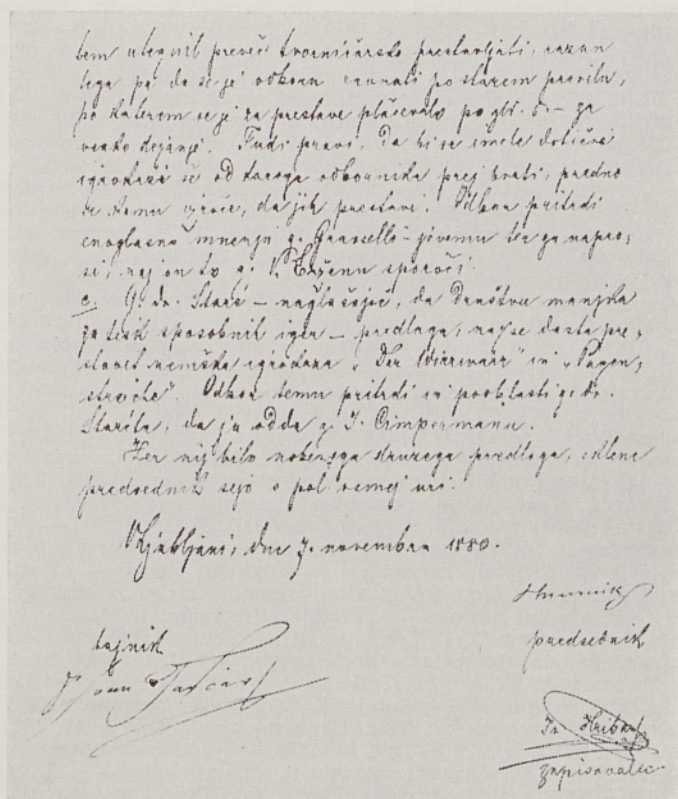 tem utegnil preveč tvorničarsko prestavljati, razun
tega pa da se je odboru ravnati po starem pravilu,
po katerem se je za prestave plačevalo po glr. 5.– za
vsako dejanje. Tudi pravi, da bi se imele dotične
igrokazi še od kacega odbornika prej brati, predno
se komu izroče, da jih prestavi. Odbor pritrdi
enoglasno mnenju g. Grasselli-jevemu ter ga napro-
si, naj on to g. V. Erženu sporoči.
c. G. dr. Staré – naglašujoč, da društvu manjka
za tisk sposobnih iger – predlaga, naj se dasta pre-
stavit nemška igrokaza „Der Wirrwarr" in „Pagen-
streiche". Odbor temu pritrdi in pooblasti g. dr.
Staréta, da ju odda g. J. Cimpermanu.
Ker nij bilo nobenega druzega predloga, sklene
predsednik sejo o pol osmej uri.
V Ljubljani, dne 7. novembra 1880.
predsednik
tajnik
Ivan Tavčar
Iv. Hribar
zapisovalec